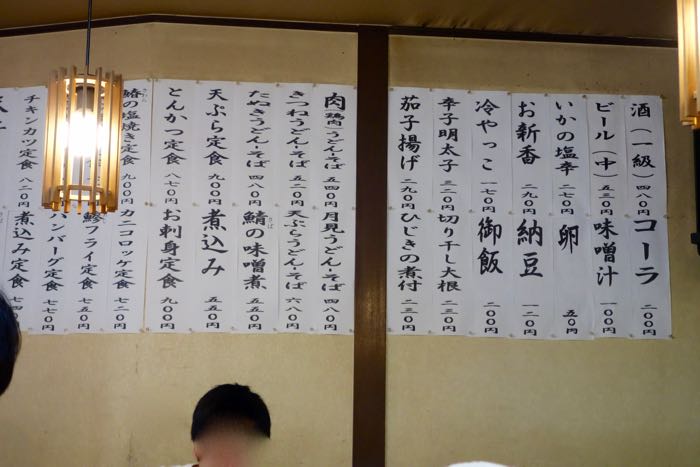 酒(一級) 四八〇円
コーラ 二〇〇円
ビール(中) 五三〇円
味噌汁 一〇〇円
いかの塩辛 二七〇円
卵 五〇円
お新香 二九〇円
納豆 一二〇円
冷やっこ 一七〇円
御飯 二〇〇円
辛子明太子 三二〇円
切り干し大根 二三〇円
茄子揚げ 二九〇円
ひじきの煮付 二三〇円
肉(鶏肉)うどん・そば 五四〇円
月見うどん・そば 四八〇円
きつねうどん・そば 五二〇円
天ぷらうどん・そば 六八〇円
たぬきうどん・そば 四八〇円
鯖の味噌煮 五五〇円
さば
天ぷら定食 九〇〇円
煮込み 五五〇円
とんかつ定食 八七〇円
お刺身定食 九〇〇円
鰆の塩焼き定食 九〇〇円
さわら
カニコロッケ定食 七二〇円
鯵フライ定食 七七〇円
チキンカツ定食 八二〇円
ハンバーグ定食 七五〇円
煮込み定食 七四